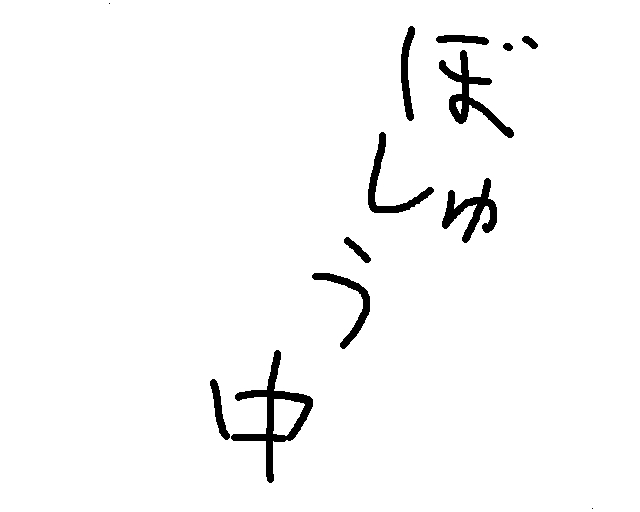 ぼしゅう中